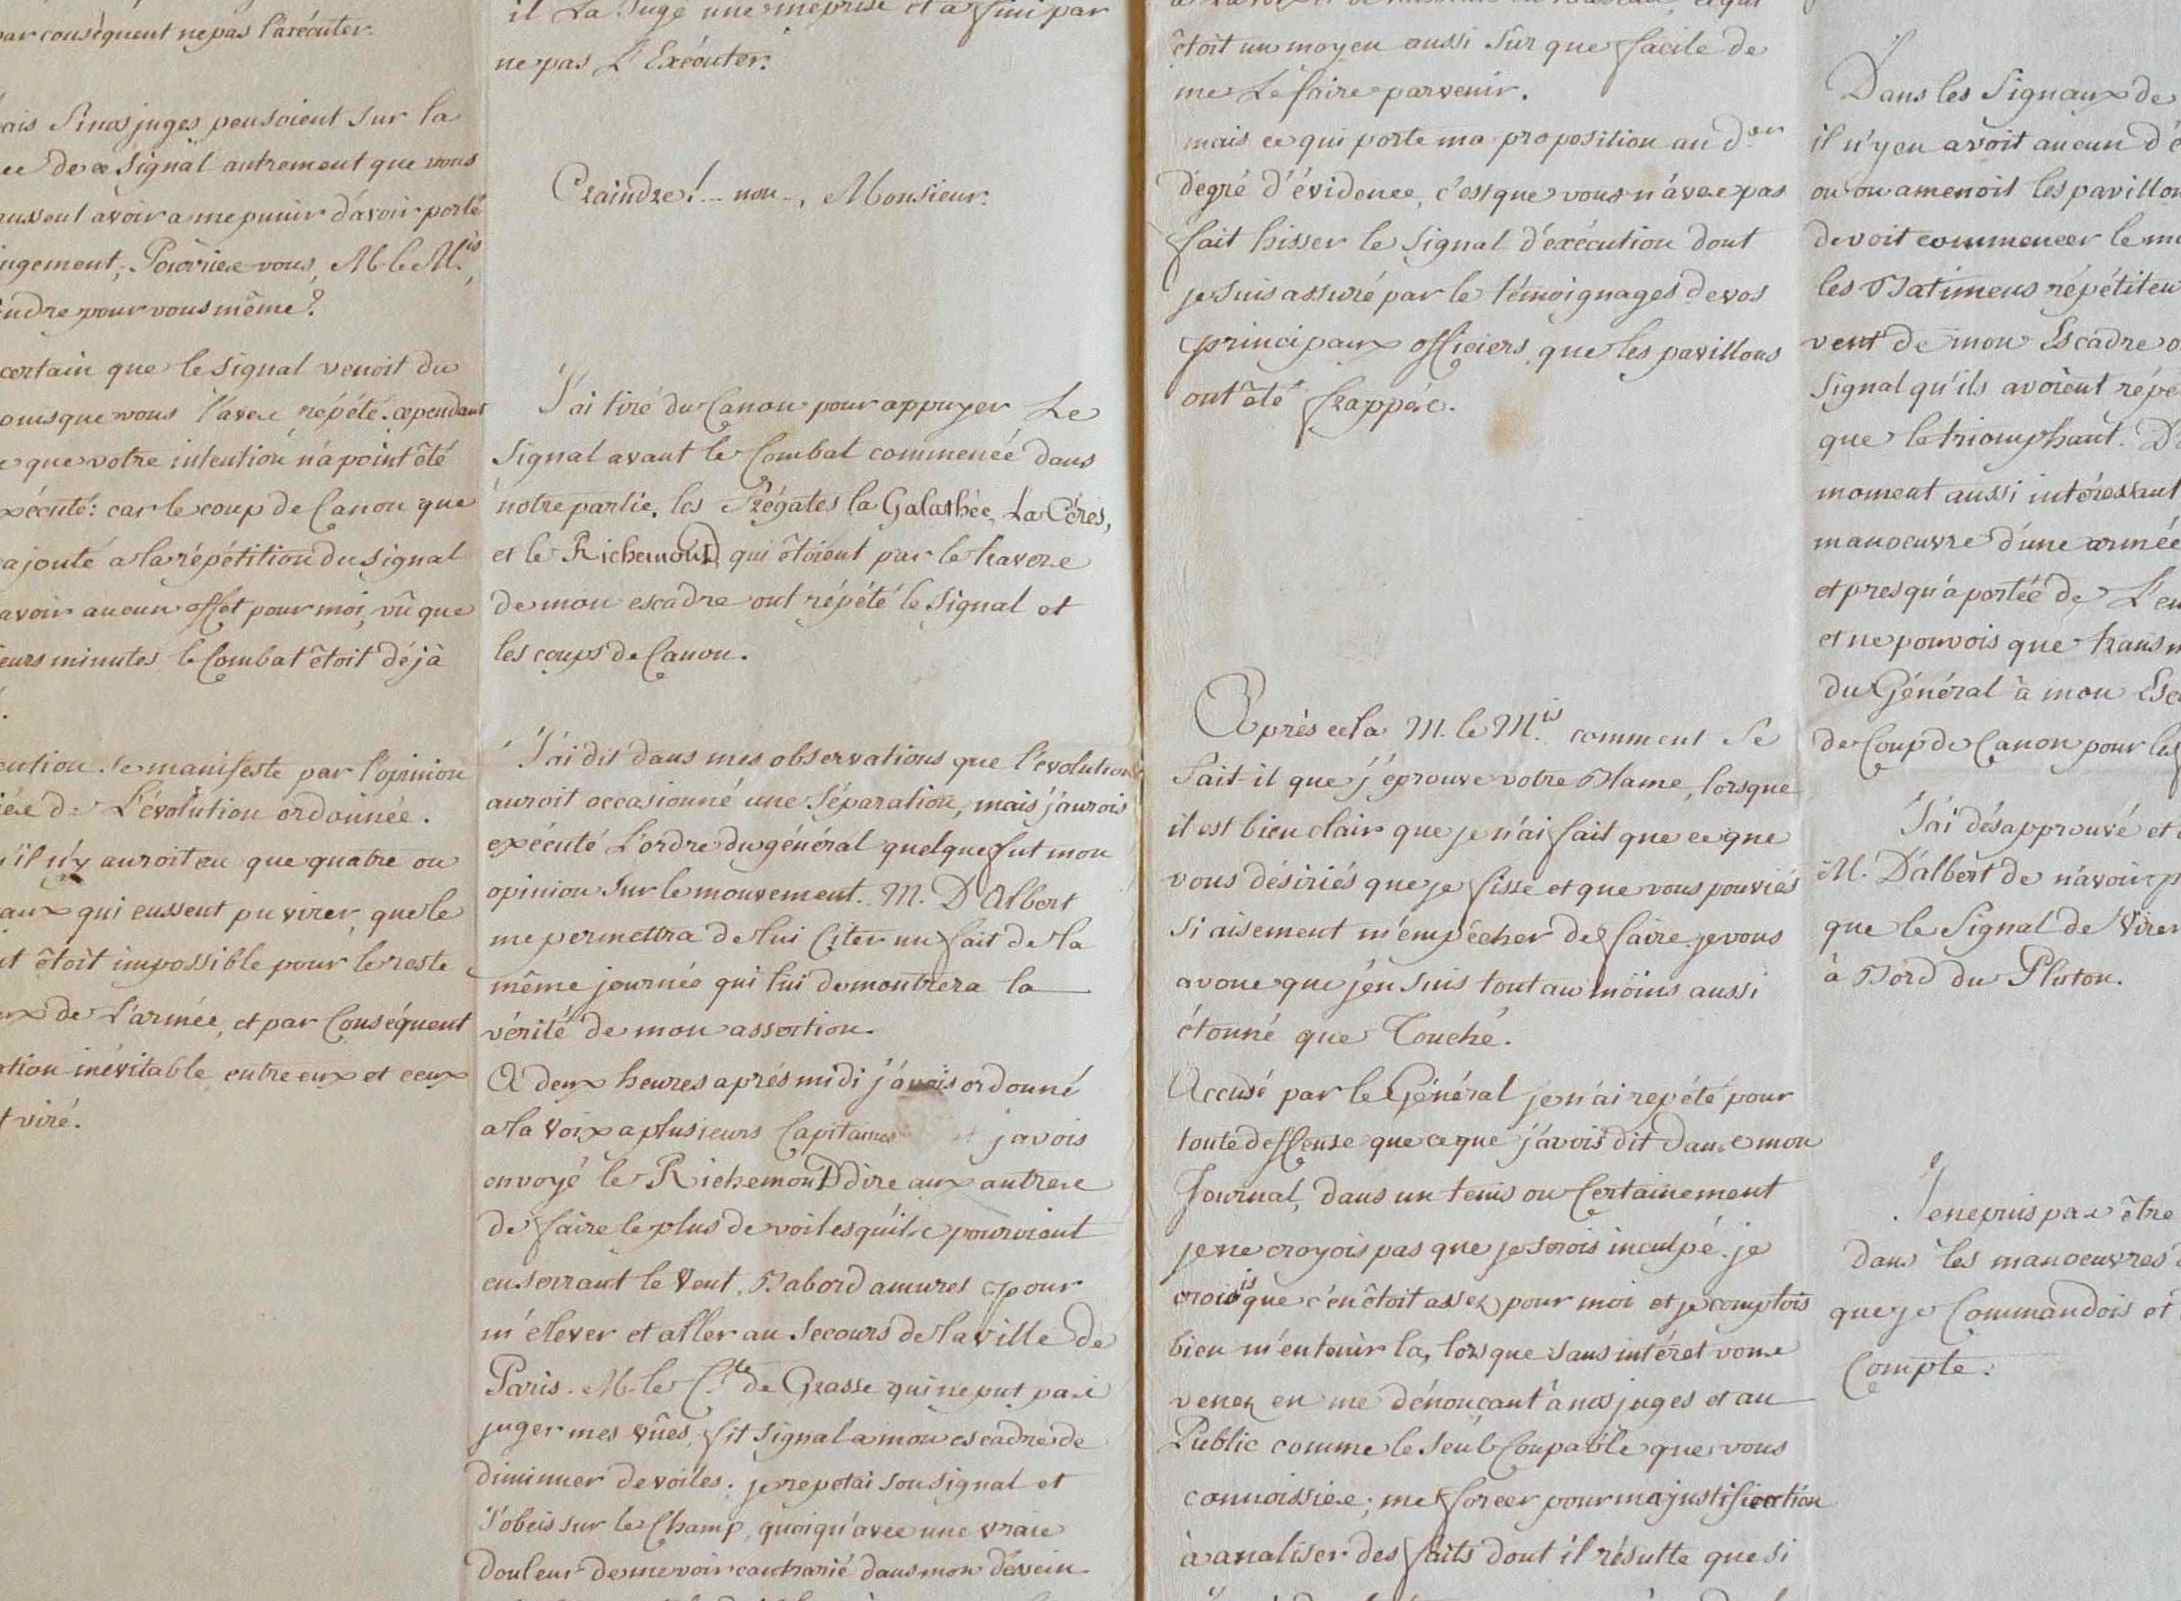 par conséquent ne pas l'exécuter.
ais si nos juges pensoient sur la
de ce signal autrement que vous
eussent avoir a me punir d'avoir porté
jugement, Pourriez vous, M. le M.is
indre pour vous même?
certain que le signal venoit du
ouisque vous l'avez répété. cependant
que votre intention n'a point été
xécuté: car le coup de Canon que
ajouté a la répétition du signal
avoir aucun effet pour moi, vû que
eurs minutes le Combat étoit déjà
ention se manifeste par l'opinion
de L'évolution ordonnée.
il n'y auroit eu que quatre ou
aux qui eussent pu virer, que le
it étoit impossible pour le reste
ux de l'armée, et par Conséquent
ation inévitable entre eux et ceux
t viré.
il La juge une meprise et a fini par
ne pas L'Exécuter.
Craindre! .. non .., Monsieur.
J'ai tiré du Canon pour appuyer Le
signal avant le Combat commencé dans
notre partie. les Frégates la Galathée, La Cérès,
et le Richemond qui étoient par le travers
de mon escadre ont répété le signal et
les coups de Canon.
J'ai dit dans mes observations que l'évolution
auroit occasionné une séparation, mais j'aurois
exécuté L'ordre du général quelque fut mon
opinion sur le mouvement. M. D'Albert
me permettra de lui Citer un fait de la
même journée qui lui demontrera la
vérité de mon assertion.
A deux heures après midi j'avois ordonné
a la Voix a plusieurs Capitaines et j'avois
envoyé le RichemonD dire aux autres
de faire le plus de voiles qu'ils pourroient
en serrant le Vent, Babord amures pour
m'elever et aller au secours de la ville de
Paris. M. le C.te de Grasse qui ne put pas
juger mes vûes, fit signal a mon escadre de
diminuer de voiles. je repetai son signal et
J'obeis sur le Champ, quoiqu'avec une vraie
douleur de me voir contrarié dans mon dessein.
étoit un moyen aussi sûr que facile de
me Le faire parvenir.
mais ce qui porte ma proposition au d.er
dégré d'évidence, c'est que vous n'avez pas
fait hisser le signal d'exécution dont
je suis assuré par le témoignages de vos
principaux officiers que les pavillons
ont été frappés.
Après cela M. le M.is comment se
fait-il que j'éprouve votre Blame, lorsque
il est bien clair que je n'ai fait que ce que
vous désiriés que je fisse et que vous pouviés
si aisement m'empêcher de faire. je vous
avoue que j'en suis tout au moins aussi
étonné que Touché.
Accusé par le Général je n'ai repété pour
toute deffense que ce que j'avois dit dans mon
Journal, dans un tems ou Certainement
je ne croyois pas que je serois inculpé. je
croiois que c'en étoit assez pour moi et je comptois
bien m'en tenir la, lorsque sans intéret vous
venez en me dénonçant à nos juges et au
Public comme le seul Coupable que vous
connoissiez; me forcer pour ma justification
à analiser des faits dont il résulte que si
Dans les Signaux de
il n'y en avoit aucun d'é
ou on amenoit les pavillon
devoit commencer le mo
les Batimens répétiteu
vent de mon Escadre o
signal qu'ils avoient répé
que le triomphant. D'a
moment aussi intéressant
manoeuvre d'une armée
et presqu'a portée de L'en
et ne pouvois que transm
du Général à mon Esc
de Coup de Canon pour les
J'ai désapprouvé et
M. D'albert de n'avoir p
que le Signal de Virer
à Bord du Pluton.
Je ne puis pas être
dans les manoeuvres d
que je Commandois et
Compte.